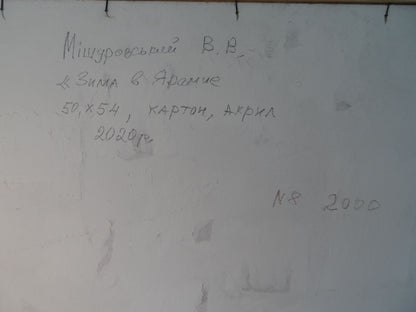 Мішуровський В. В.
« Зима в Яремче
50, х 54, картон, акрил
2020р.
N8 2000